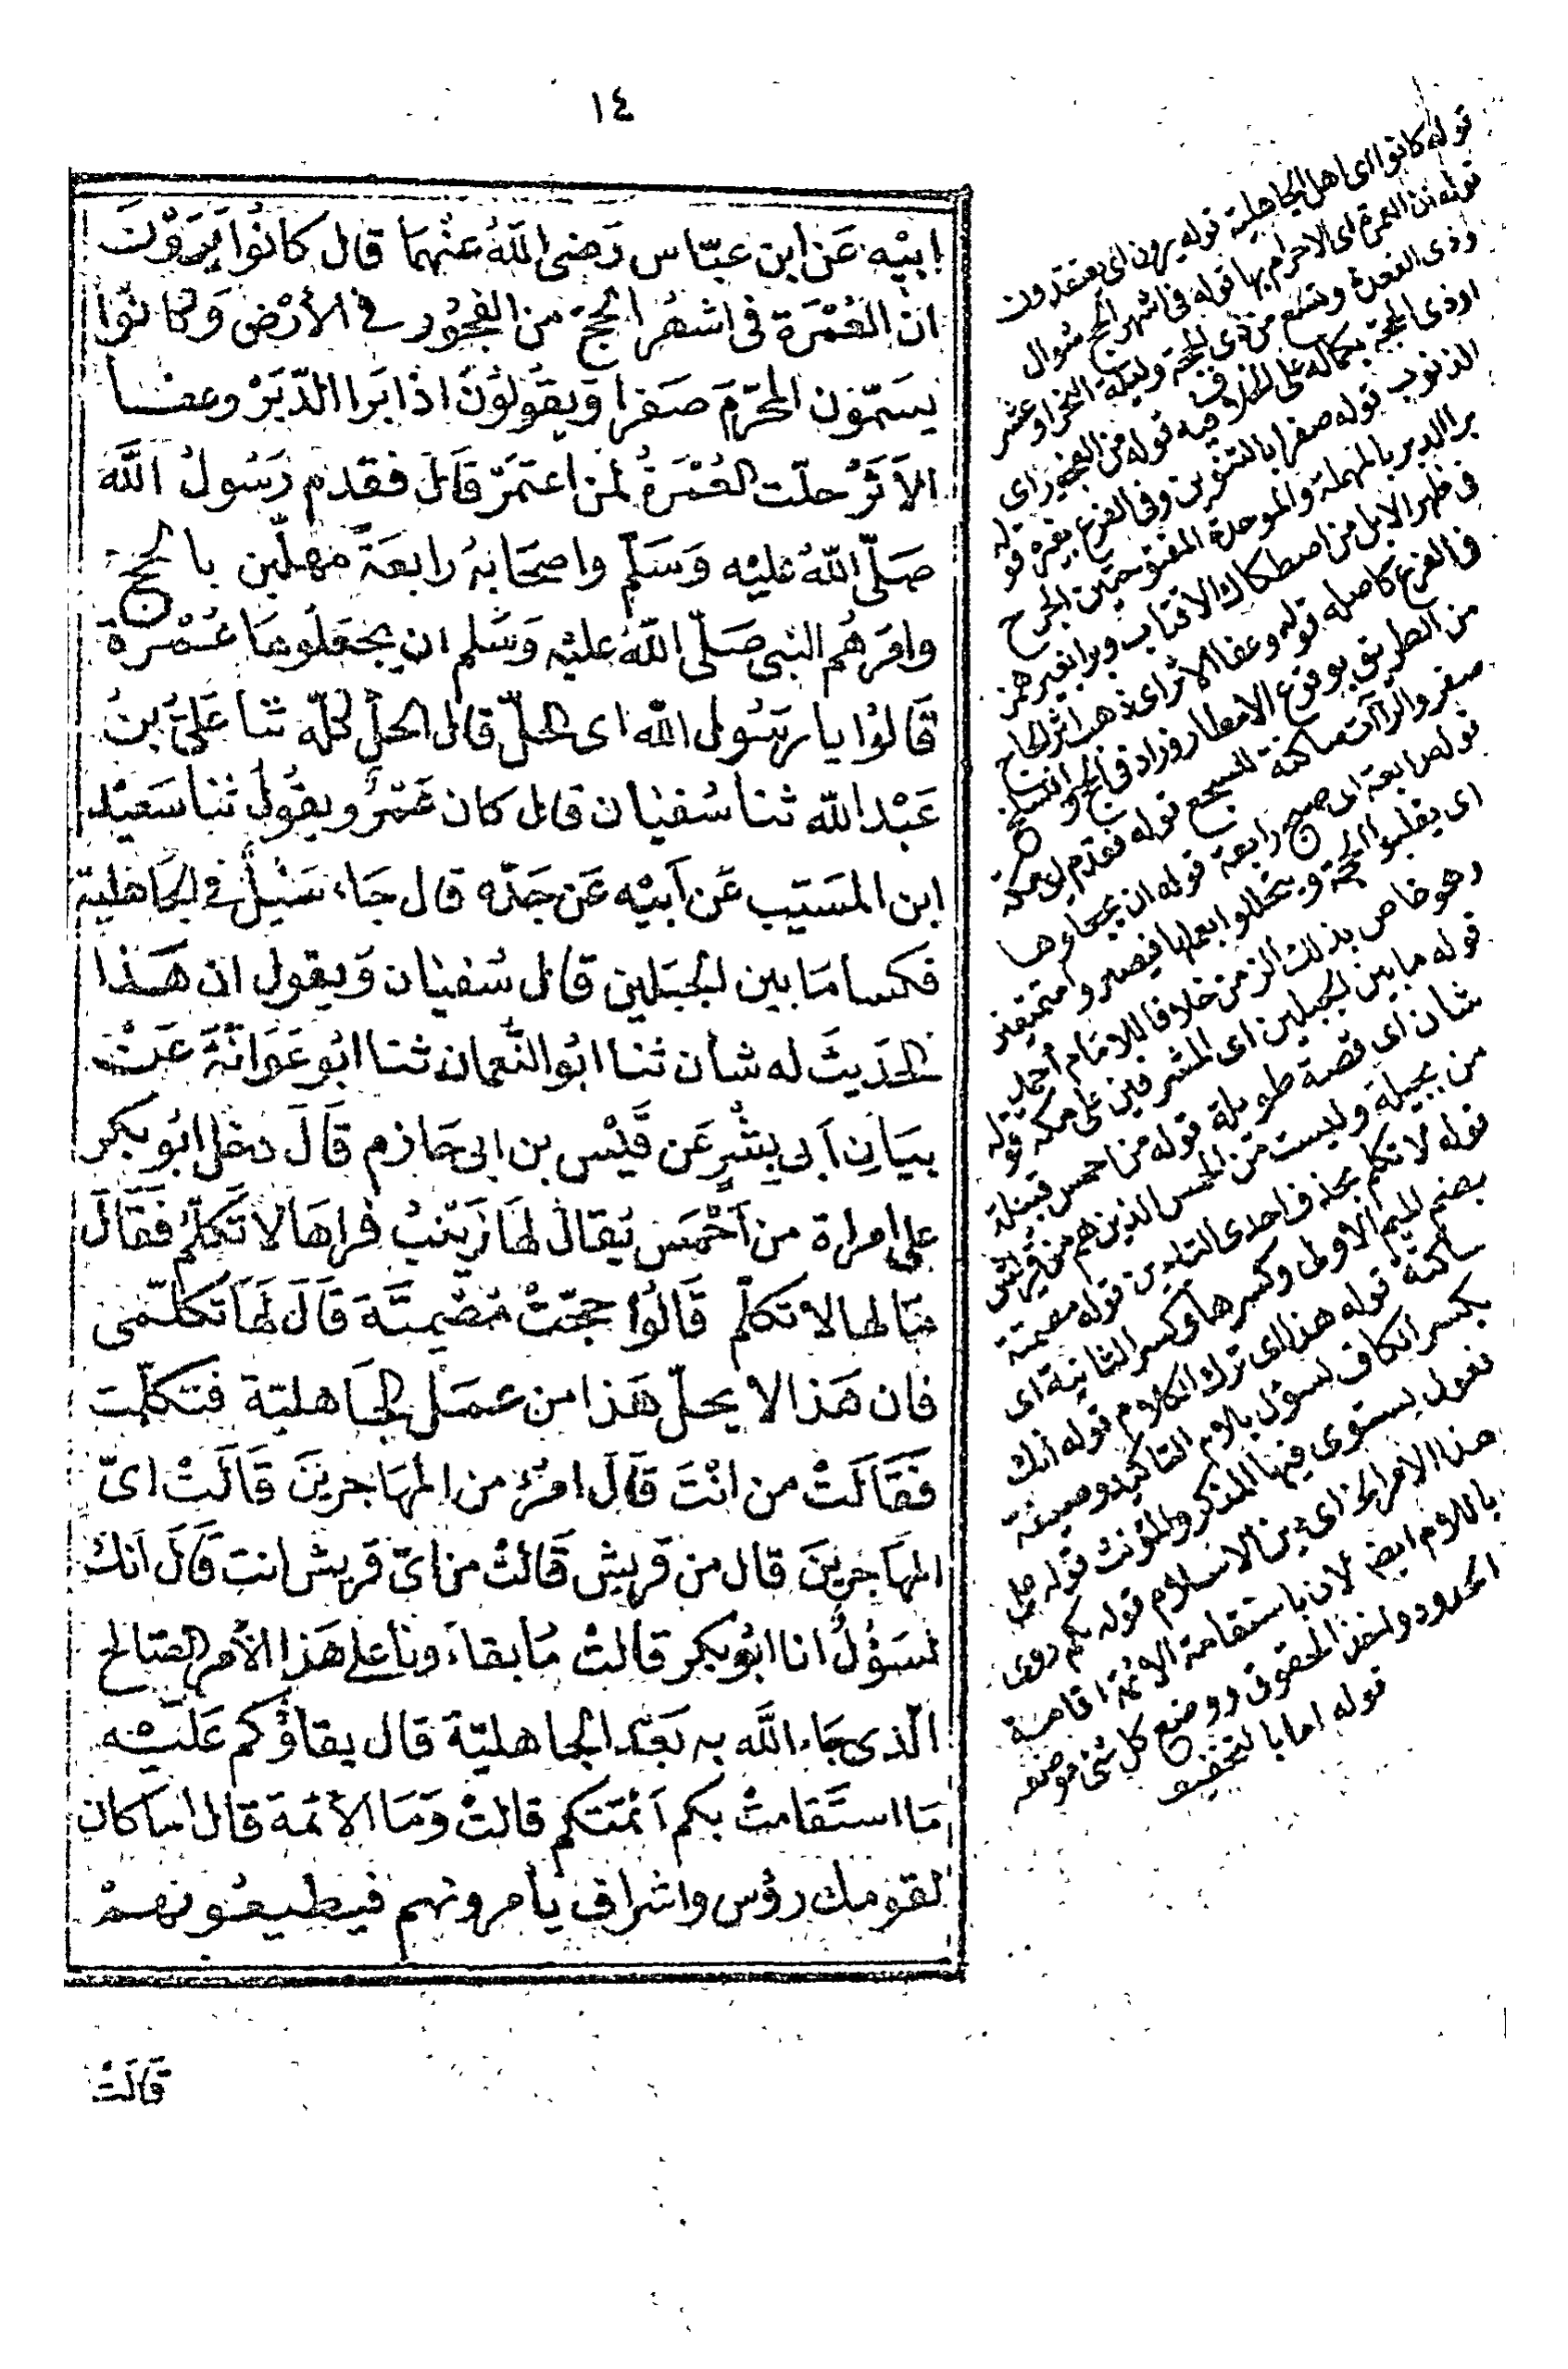 ١٤
ابيْه عَن ابن عبّاس رَضى اللهُ عنْهمَا قال كانُوا يَرَوْنَ
انّ العُمْرَة فى اشهُر الحجّ من الفجُور في الأرْض وَكانوُا
يسَمّون المحَرّمَ صَفرا وَيقَولوُنَ اذا بَرا الدّبَرْ وعفا
الاَثَرْ حلّت العُمْرَةُ لمن اعتمَرْ قَالَ فقدم رَسُولُ اللَّه
صَلّى اللهُ عليْه وَسَلّم واصحَابهُ رابعَةً مهلّين بالحجّ
وامَرَهُم النبى صَلّى اللهُ عليْه وَسَلم ان يجعَلوهَا عُمْرة
قَالوُا يا رسُول الله اى الحلّ قال الحلّ كلّه ثنا علىّ بنُ
عَبْد الله ثنا سُفيٰان قال كان عَمْرٌو يقُولُ ثنا سَعيْد
ابن المسَيّب عَن اَبيْه عَن جَدّه قال جَاء سَيْلٌ في الجَاهلية
فكسا مَا بين الجبَلين قال سُفيٰان وَيقول ان هَذا
الحَديثَ له شأن ثنا ابُو النّعمان ثنا ابُو عَوَانَةَ عَنْ
بيَانٍ اَبى بِشْرٍ عَن قَيْس بن ابى حَازم قَالَ دخل ابُو بكر
على امراة من اَحْمَس يُقالُ لهَا زَيْنبُ فراهَا لاَ تَكلّمُ فَقَالَ
مَا لها لا تكلّم قَالُوا حجّتْ مُصْمِتَةً قَالَ لهَا تكلّمى
فان هَذا لا يحلّ هَذا من عمَل الجَاهليّة فتكلّمت
فَقَالَتْ من انْتَ قَالَ امرُؤ من المهَاجريْنَ قَالَتْ اىّ
المهَاجريْنَ قال من قريش قَالتْ من اىّ قريش انتَ قَالَ انكِ
لسَؤُلٌ انا ابُو بكر قالتْ مَا بقاءُونا على هَذا الأمر الصّالح
الّذى جَاء اللَّه به بَعْدَ الجاهليّة قال بقاؤُكم عَليْه
مَا استَقامتْ بكم اَئمّتكم قالتْ وَمَا الأئمة قال اما كان
لقومك رؤس واشراف يأمرونهم فيطيعُونهمْ
قَالَتْ
قوله كانوا اى اهل الجاهلية قوله يرون اى يعتقدون
قوله ان العمرة اى الاحرام بها قوله فى اشهر الحج شوال
وذى القعدة وتسع من ذى الحجة وليلة النحر او عشر
او ذى الحجة بكماله على الخلاف فيه قوله من الفجور اى
الذنوب قوله صفرا بالتنوين وفى الفرع بغيره قوله
برا الدبر بالمهملة والموحدة المفتوحتين الجرح
فى ظهر الابل من اصطكاك الاقتاب وبرا بغير همز
فى الفرع كاصله قوله وعفا الاثر اى ذهب اثر الحاج
من الطريق بوقوع الامطار وزاد فى الحج وانسلخ
صفر والراآت ساكنة للسجع قوله فقدم اى مكة
قوله رابعة اى صبح رابعة قوله ان يجعلوها
اى يقلبوا الحجة ويتحللوا بعملها فيصيروا متمتعين
وهو خاص بذلك الزمن خلافا للامام احمد
قوله ما بين الجبلين اى المشرفين على مكة قوله
شان اى قصة طويلة قوله من احمس قبيلة
من بجيلة وليست من الحمس الذين هم من قريش
قوله لا تكلم بحذف احدى التائين قوله مصمتة
بضم الميم الاولى وكسرها وكسر الثانية اى
ساكتة قوله هذا اى ترك الكلام قوله انك
بكسر الكاف لسؤل بلام التاكيد وصيغة
فعول يستوى فيها المذكر والمؤنث قوله على
هذا الامر الخ اى دين الاسلام قوله بكم روى
باللام ايضا لان باستقامة الائمة اقامة
الحدود واخذ الحقوق ووضع كل شئ موضعه
قوله اما بالتخفيف